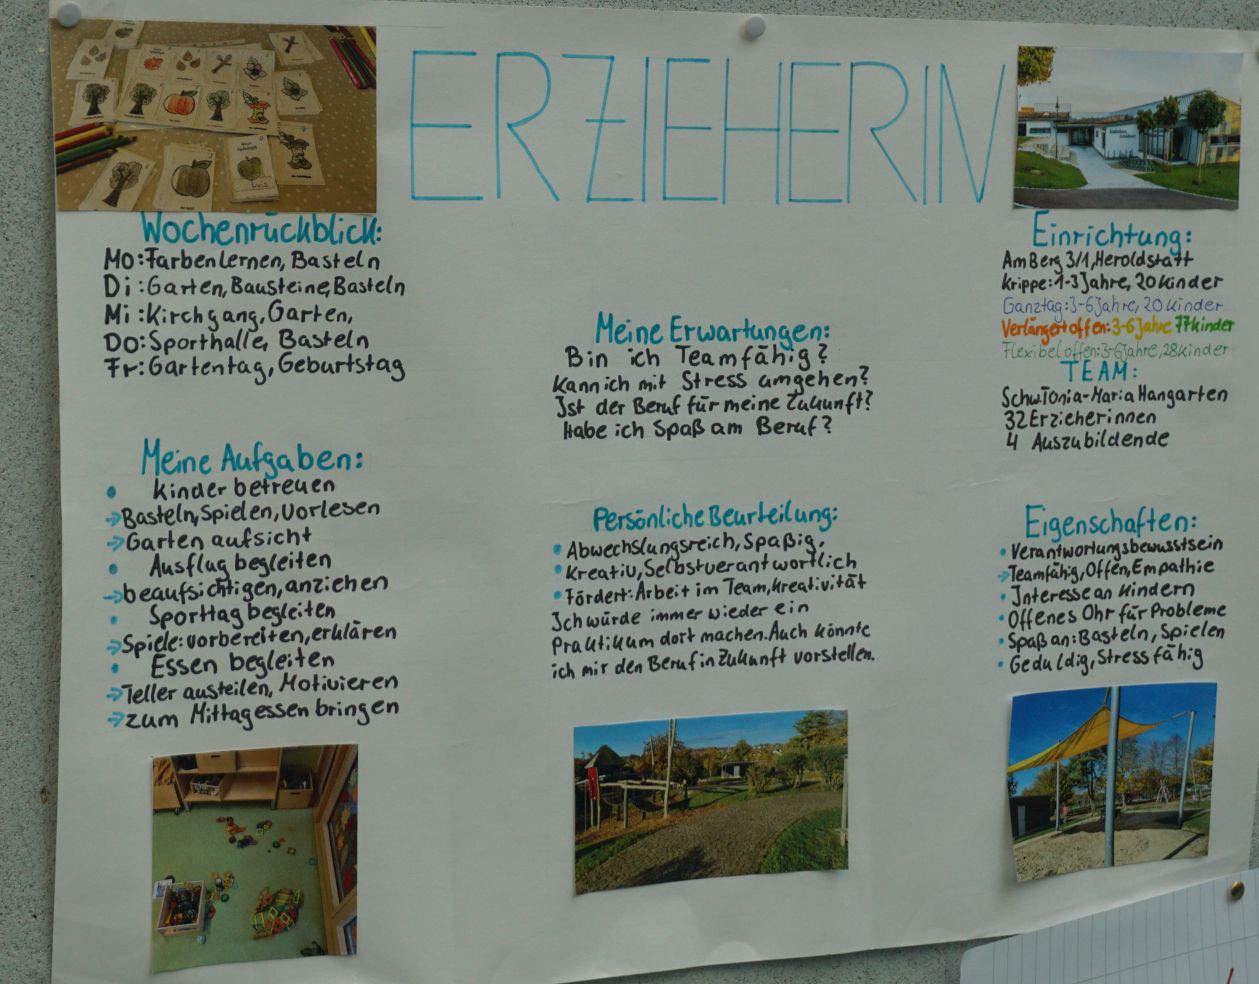 ERZIEHERIN
Wochenrückblick:
Mo: Farbenlernen, Basteln
Di: Garten, Bausteine, Basteln
Mi: Kirchgang, Garten,
Do: Sporthalle, Basteln
Fr: Gartentag, Geburtstag
Meine Aufgaben:
• Kinder betreuen
→ Basteln, Spielen, Vorlesen
→ Garten aufsicht
• Ausflug begleiten
→ beaufsichtigen, anziehen
• Sporttag begleiten
→ Spiele: vorbereiten, erklären
• Essen begleiten
→ Teller austeilen, Motivieren
→ zum Mittagessen bringen
Meine Erwartungen:
Bin ich Teamfähig?
Kann ich mit Stress umgehen?
Ist der Beruf für meine Zukunft?
Habe ich Spaß am Beruf?
Persönliche Beurteilung:
• Abwechslungsreich, Spaßig,
• Kreativ, Selbstverantwortlich
• Fördert: Arbeit im Team, Kreativität
Ich würde immer wieder ein
Praktikum dort machen. Auch könnte
ich mir den Beruf in Zukunft vorstellen.
Einrichtung:
Am Berg 3/1, Heroldstatt
Krippe: 1-3 Jahre, 20 Kinder
Ganztag: 3-6 Jahre, 20 Kinder
Verlängert offen: 3-6 Jahre 77 Kinder
Flexibel offen: 3-6 Jahre, 28 Kinder
TEAM:
Schw. Tonia-Maria Hangarten
32 Erzieherinnen
4 Auszubildende
Eigenschaften:
• Verantwortungsbewusstsein
→ Teamfähig, Offen, Empathie
• Interesse an Kindern
• Offenes Ohr für Probleme
• Spaß an: Basteln, Spielen
• Geduldig, Stressfähig